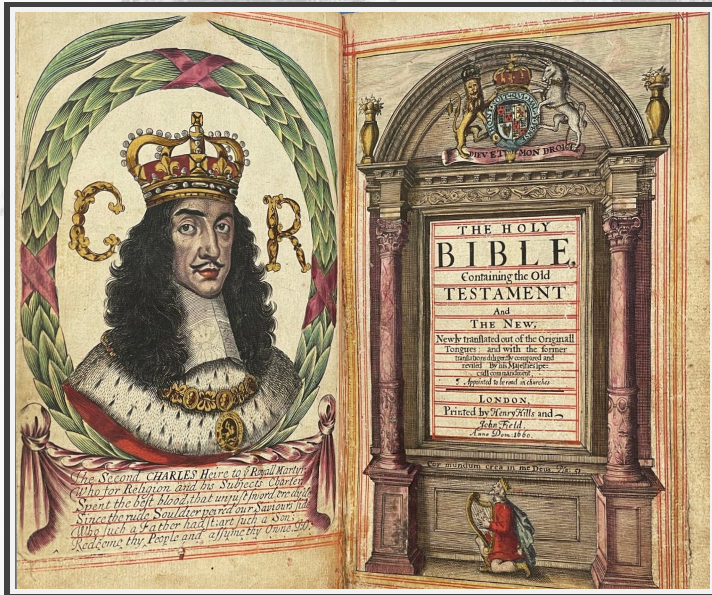 C R
The Second CHARLES Heire to ye Royall Martyr
Who for Religion and his Subjects Charter
Spent the best blood, that unjust sword
Since the rude Souldier peirced our Saviours
Who such a Father hadst: art such a Son;
Redeeme thy People and assume thy Owne.
DIEV ET MON DROIT
THE HOLY
BIBLE,
Containing the Old
TESTAMENT
And
THE NEW,
Newly translated out of the Originall
Tongues: and with the former
translations diligently compared and
revised By his Majesties spe:
ciall commandment.
Appointed to be read in churches
LONDON,
Printed by Henry Hills and
John Field.
Anno Dom: 1660.
Cor mundum crea in me Deus.